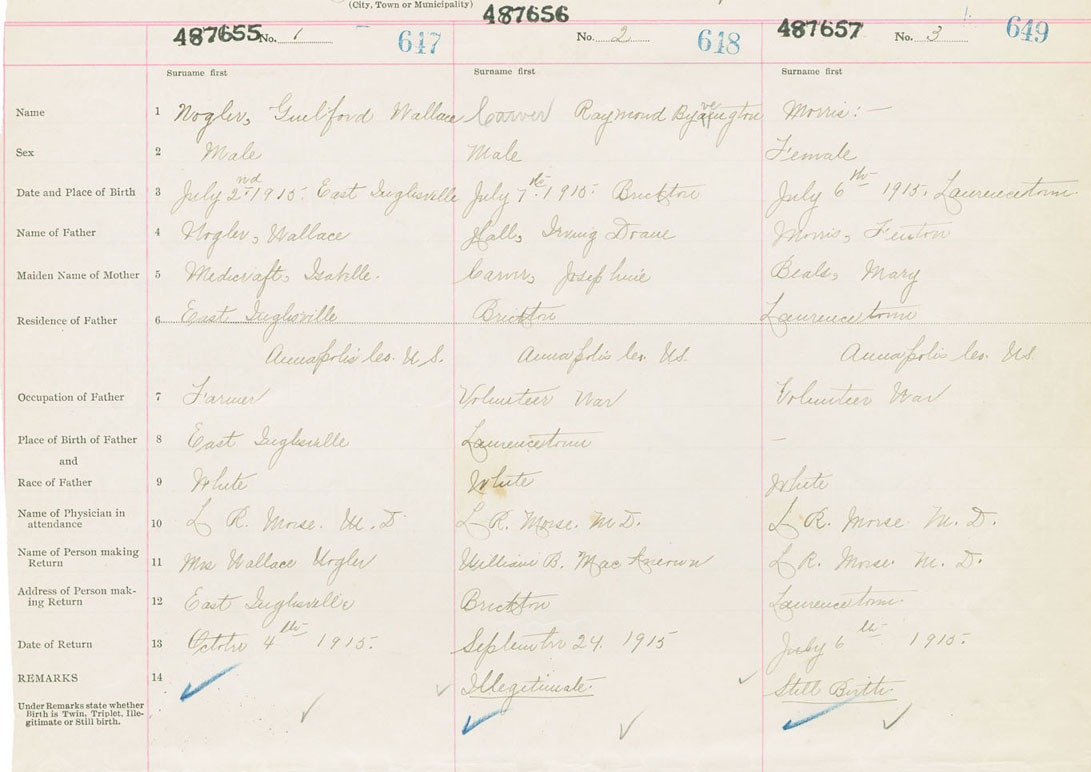 (City, Town or Municipality)
487655 No. 1 647 487656 No. 2 648 487657 No. 3 649
Surname first Surname first Surname first
Name 1 Nogler, Guilford Wallace Carver Raymond Morris: —
Sex 2 Male Male Female
Date and Place of Birth 3 July 2nd 1915. East Inglisville July 7th 1915 Brickton July 6th 1915. Laurencetown
Name of Father 4 Nogler, Wallace Hall, Irving Doane Morris, Fenton
Maiden Name of Mother 5 Medicraft, Isabelle. Carver, Josephine Beals, Mary
Residence of Father 6 East Inglisville Brickton Laurencetown
Annapolis Co. N.S. Annapolis Co. N.S. Annapolis Co. N.S.
Occupation of Father 7 Farmer Volunteer War Volunteer War
Place of Birth of Father 8 East Inglisville Laurencetown —
and
Race of Father 9 White White White
Name of Physician in
attendance 10 L R. Morse. M. D. L R. Morse. M.D. L R. Morse M. D.
Name of Person making
Return 11 Mrs Wallace Nogler William B. L R. Morse. M. D.
Address of Person mak-
ing Return 12 East Inglisville Brickton Laurencetown
Date of Return 13 October 4th 1915. September 24. 1915 July 6th 1915.
REMARKS 14 Illegitimate. Still Birth.
Under Remarks state whether
Birth is Twin, Triplet, Ille-
gitimate or Still birth.